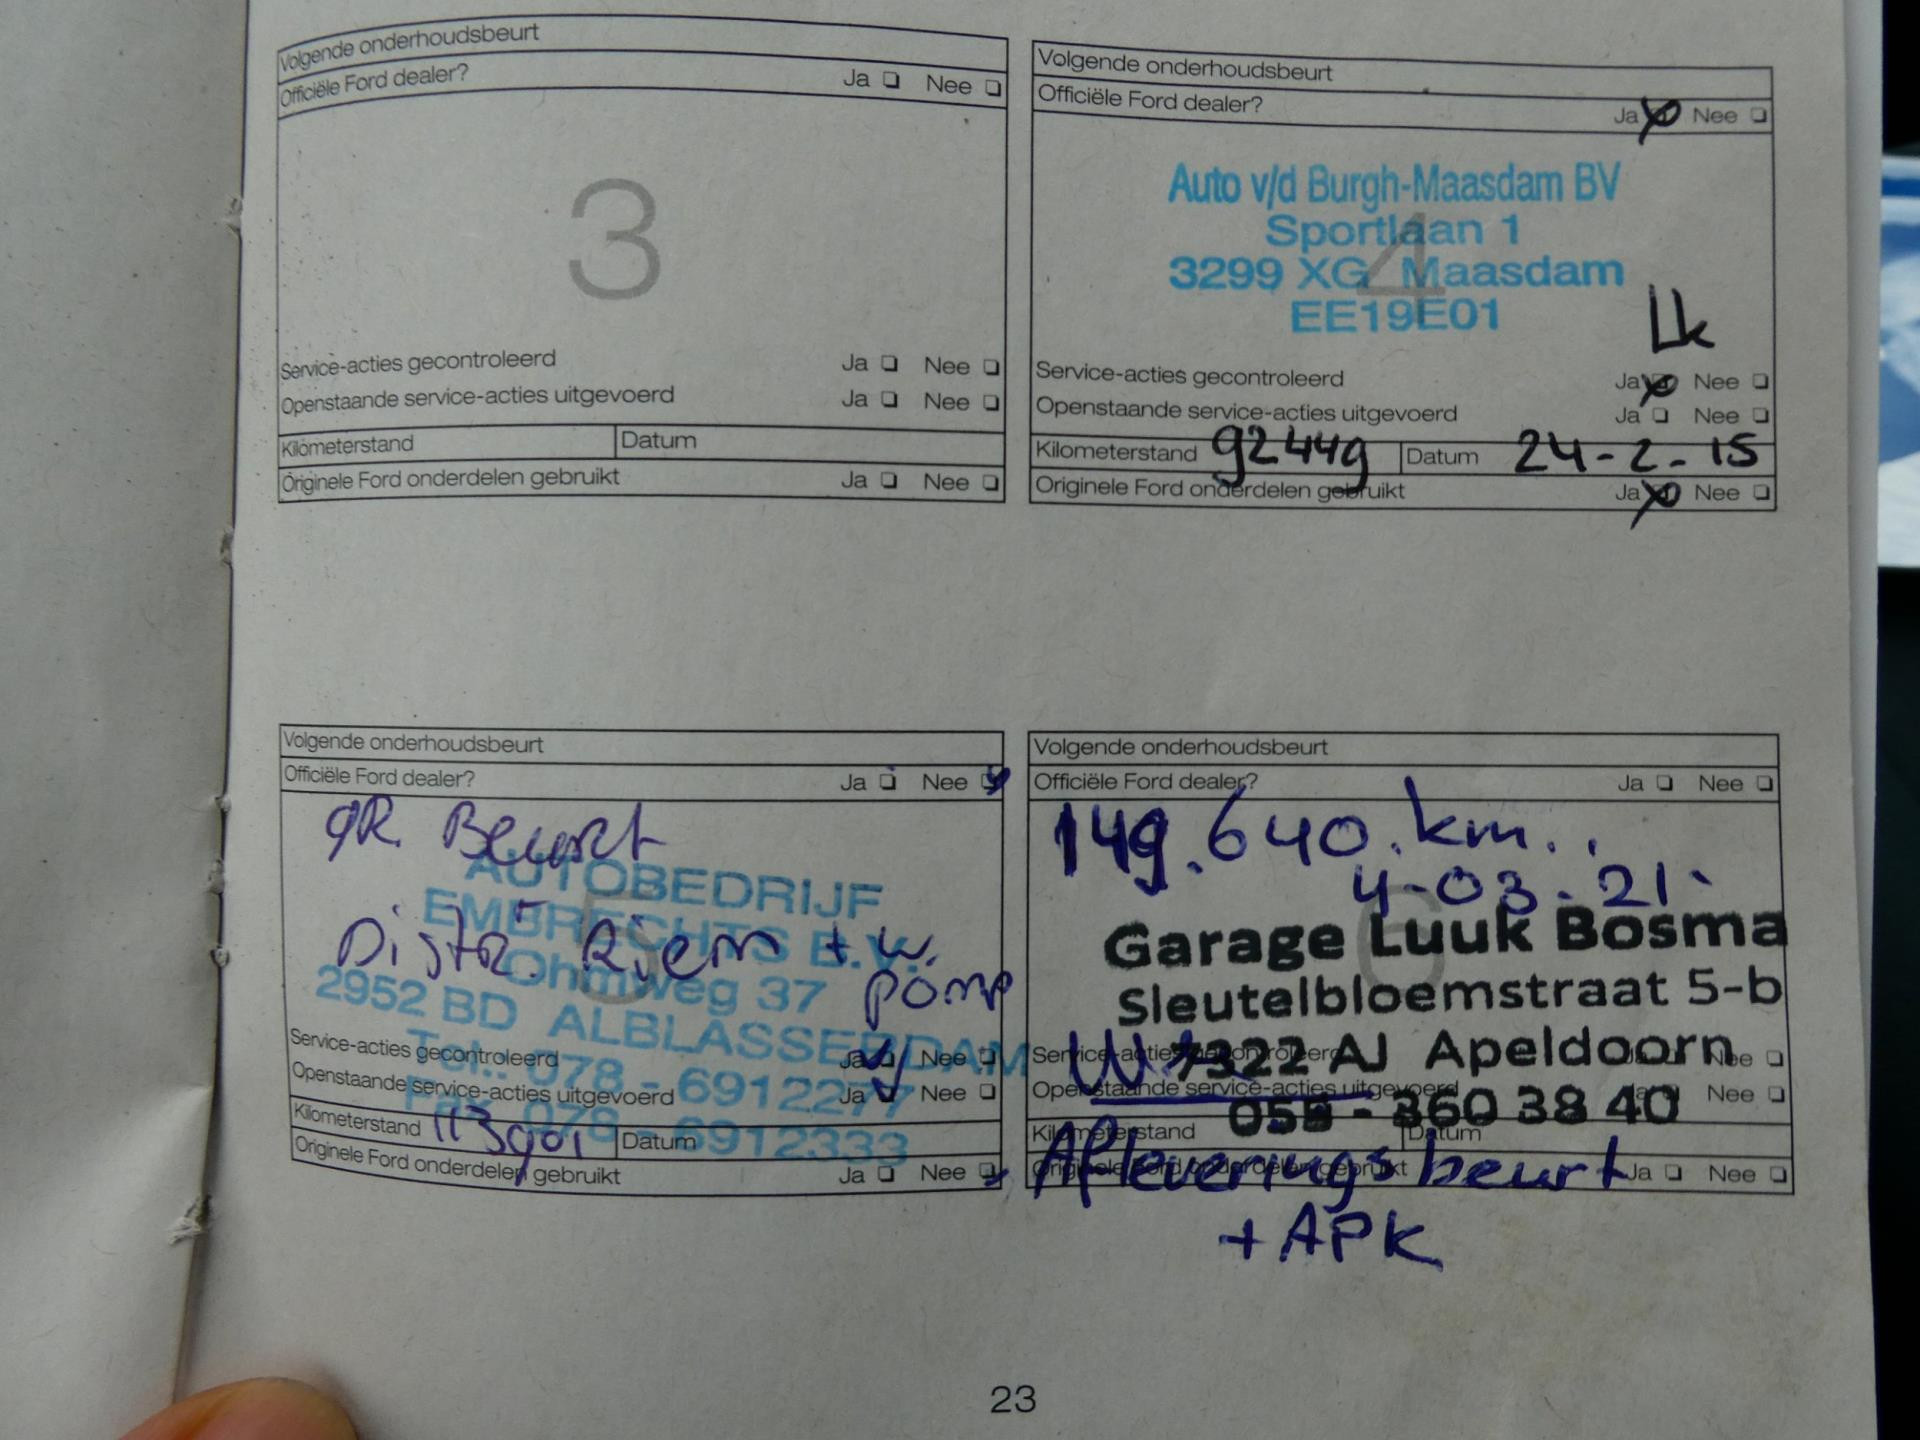 Volgende onderhoudsbeurt
Officiële Ford dealer? Ja Nee
3
Service-acties gecontroleerd Ja Nee
Openstaande service-acties uitgevoerd Ja Nee
Kilometerstand Datum
Originele Ford onderdelen gebruikt Ja Nee
Volgende onderhoudsbeurt
Officiële Ford dealer? Ja Nee
Auto v/d Burgh-Maasdam BV
Sportlaan 1
4
3299 XG Maasdam
EE19E01
Lk
Service-acties gecontroleerd Ja Nee
Openstaande service-acties uitgevoerd Ja Nee
Kilometerstand 92449 Datum 24-2-15
Originele Ford onderdelen gebruikt Ja Nee
Volgende onderhoudsbeurt
Officiële Ford dealer? Ja Nee
GR. Beurt
AUTOBEDRIJF
EMBRECHTS B.V.
Distr. Riem + w.
pomp
5
Ohmweg 37
2952 BD ALBLASSERDAM
Tel.: 078 - 6912277
Fax: 078 - 6912333
Service-acties gecontroleerd Ja Nee
Openstaande service-acties uitgevoerd Ja Nee
Kilometerstand 113901 Datum
Originele Ford onderdelen gebruikt Ja Nee
Volgende onderhoudsbeurt
Officiële Ford dealer? Ja Nee
149.640.km..
4-03-21.
6
Garage Luuk Bosma
Sleutelbloemstraat 5-b
7322 AJ Apeldoorn
055 - 360 38 40
Service-acties gecontroleerd Ja Nee
Openstaande service-acties uitgevoerd Ja Nee
Kilometerstand Datum
Originele Ford onderdelen gebruikt Ja Nee
Afleverings beurt
+ APK
23